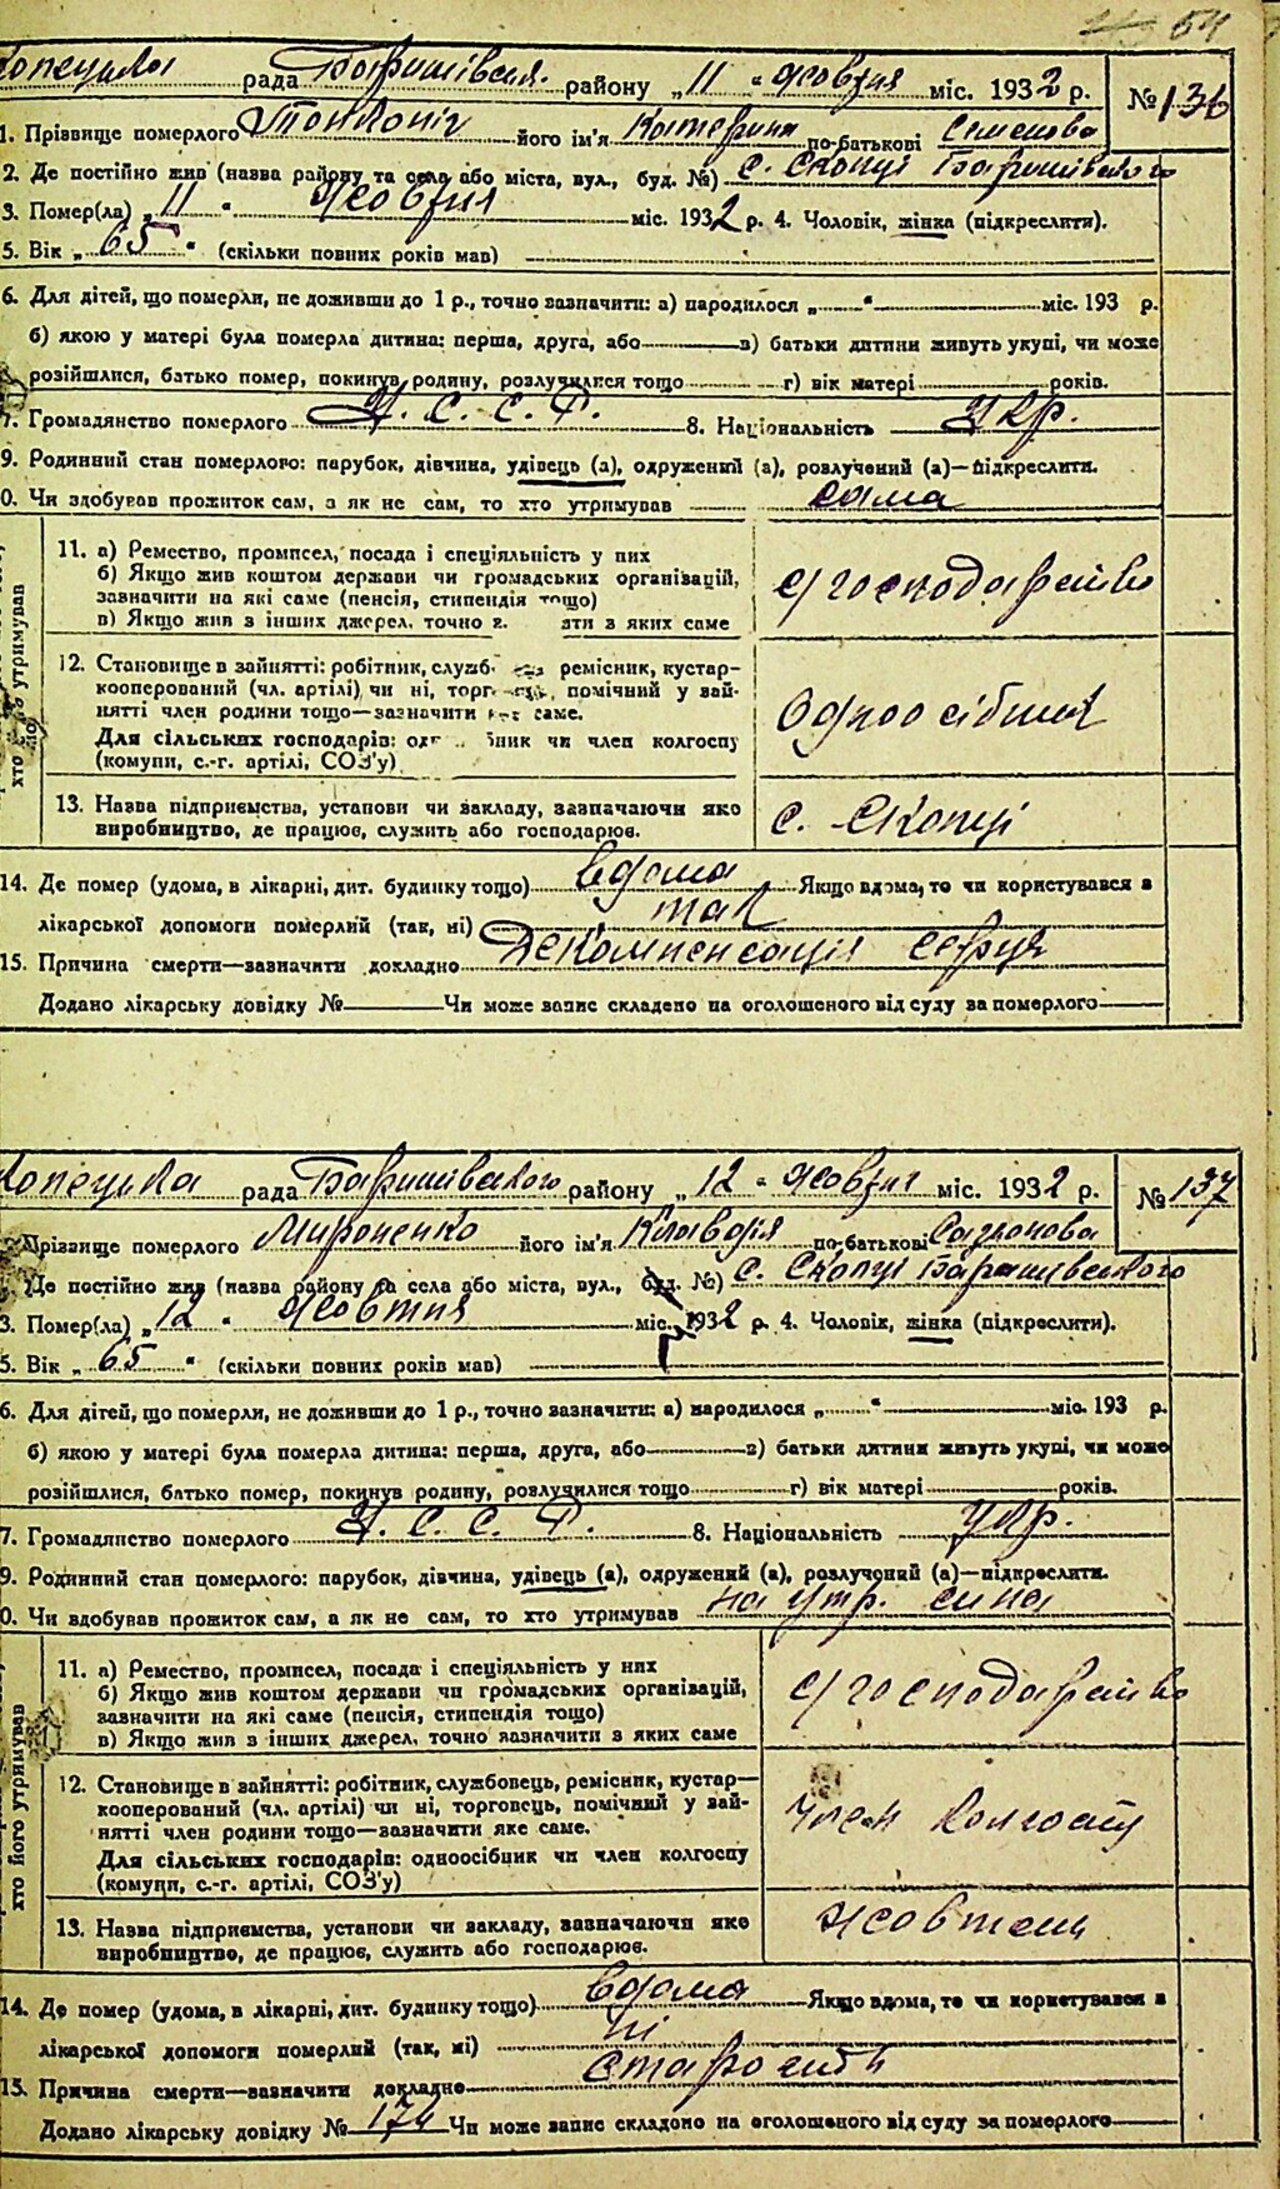 54
рада Баришівськ. району „11“ жовтня міс. 1932 р. №136
1. Прізвище померлого його ім'я Катерина по-батькові Семенова
2. Де постійно жив (назва району та села або міста, вул., буд. №) с. Скопці Баришівського
3. Помер(ла) „11“ жовтня міс. 1932 р. 4. Чоловік, жінка (підкреслити).
5. Вік „65“ (скільки повних років мав)
6. Для дітей, що померли, не доживши до 1 р., точно зазначити: а) народилося „ “ міс. 193 р.
б) якою у матері була померла дитина: перша, друга, або в) батьки дитини живуть укупі, чи може
розійшлися, батько помер, покинув родину, розлучилися тощо г) вік матері років.
7. Громадянство померлого У. С. С. Р. 8. Національність Укр.
9. Родинний стан померлого: парубок, дівчина, удівець (а), одружений (а), розлучений (а)—підкреслити.
0. Чи здобував прожиток сам, а як не сам, то хто утримував сама
хто його утримував
11. а) Ремество, промисел, посада і спеціяльність у них
б) Якщо жив коштом держави чи громадських організацій,
зазначити на які саме (пенсія, стипендія тощо)
в) Якщо жив з інших джерел, точно з яких саме
с/господарство
12. Становище в зайнятті: робітник, служб ремісник, кустар-
кооперований (чл. артілі) чи ні, торг помічний у зай-
нятті член родини тощо—зазначити яке саме.
Для сільських господарів: чи член колгоспу
(комуни, с.-г. артілі, СОЗ'у)
Одноосібниця
13. Назва підприємства, установи чи закладу, зазначаючи яке
виробництво, де працює, служить або господарює.
с. Скопці
14. Де помер (удома, в лікарні, дит. будинку тощо) вдома Якщо вдома, то чи користувався з
лікарської допомоги померлий (так, ні) так
15. Причина смерти—зазначити докладно Декомпенсація серця
Додано лікарську довідку № Чи може запис складено на оголошеного від суду за померлого
рада Баришівського району „12“ жовтня міс. 1932 р. №137
Прізвище померлого Мироненко його ім'я Клавдія по-батькові
Де постійно жив (назва району та села або міста, вул., буд. №) с. Скопці Баришівського
3. Помер(ла) „12“ жовтня міс. 1932 р. 4. Чоловік, жінка (підкреслити).
5. Вік „65“ (скільки повних років мав)
6. Для дітей, що померли, не доживши до 1 р., точно зазначити: а) народилося „ “ міс. 193 р.
б) якою у матері була померла дитина: перша, друга, або в) батьки дитини живуть укупі, чи може
розійшлися, батько помер, покинув родину, розлучилися тощо г) вік матері років.
7. Громадянство померлого У. С. С. Р. 8. Національність Укр.
9. Родинний стан померлого: парубок, дівчина, удівець (а), одружений (а), розлучений (а)—підкреслити.
0. Чи здобував прожиток сам, а як не сам, то хто утримував на утр. сина
хто його утримував
11. а) Ремество, промисел, посада і спеціяльність у них
б) Якщо жив коштом держави чи громадських організацій,
зазначити на які саме (пенсія, стипендія тощо)
в) Якщо жив з інших джерел, точно зазначити з яких саме
с/господарство
12. Становище в зайнятті: робітник, службовець, ремісник, кустар—
кооперований (чл. артілі) чи ні, торговець, помічний у зай-
нятті член родини тощо—зазначити яке саме.
Для сільських господарів: одноосібник чи член колгоспу
(комуни, с.-г. артілі, СОЗ'у)
член колгоспу
13. Назва підприємства, установи чи закладу, зазначаючи яке
виробництво, де працює, служить або господарює.
Жовтень
14. Де помер (удома, в лікарні, дит. будинку тощо) вдома Якщо вдома, то чи користувався з
лікарської допомоги померлий (так, ні) ні
15. Причина смерти—зазначити докладно
Додано лікарську довідку № 174 Чи може запис складено на оголошеного від суду за померлого